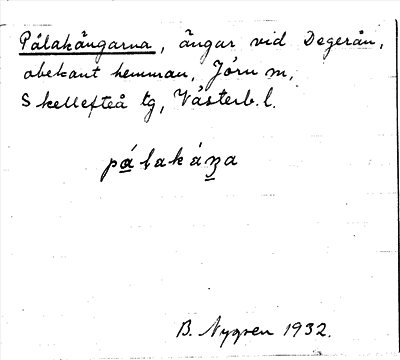 Pålakångarna, ängar vid Degerån,
obekant hemman, Jörn m,
Skellefteå tg, Västerb. l.
pálakáŋa
B. Nygren 1932.